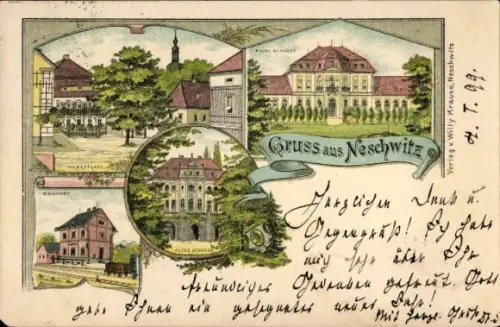 NEUES SCHLOSS
MARKTPLATZ
Gruss aus Neschwitz
Verlag v. Willy Krause, Neschwitz
4. I. 99.
BAHNHOF
ALTES SCHLOSS
Herzlichen Dank u.
Gegengruß! Es hat
mich sehr über Ihr
freundliches Gedenken gefreut. Gott
gebe Ihnen ein gesegnetes neues Jahr!
Mit herzl.